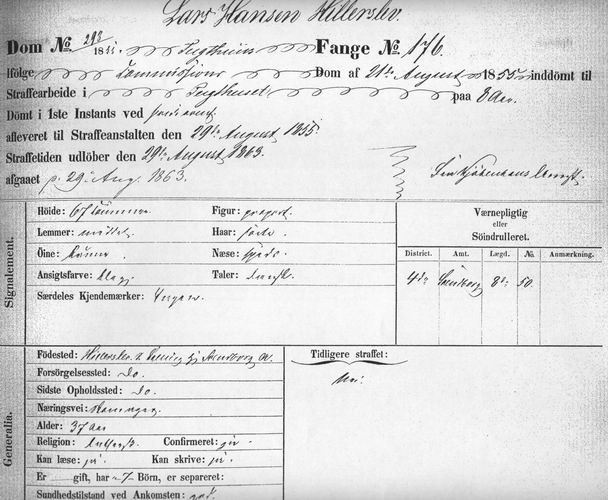 Lars Hansen Hillerslev.
Dom No 293 18 Tugthuus Fange No 176.
Ifölge Commissions Dom af 21de August 1855 inddömt til
Straffearbeide i Tugthuset paa 8 Aar.
Dömt i 1ste Instants ved
afleveret til Straffeanstalten den 29de August 1855.
Straffetiden udlöber den 29de August 1863.
afgaaet p. 29 Aug. 1863.
Signalement.
Höide: 67 Tommer Figur: proport.
Lemmer: middel Haar:
Öine: Næse:
Ansigtsfarve: Taler: Dansk
Særdeles Kjendemærker: Ingen.
Værnepligtig
eller
Söindrulleret.
District. Amt. Lægd. No. Anmærkning.
4de Svendborg 8de 50.
Generalia.
Födested: Hillerslev Svendborg A.
Forsörgelsessted: Do.
Sidste Opholdssted: Do.
Næringsvei:
Alder: 37 Aar
Religion: luthersk. Confirmeret: ja.
Kan læse: ja. Kan skrive: ja.
Er gift, har 7 Börn, er separeret:
Sundhedstilstand ved Ankomsten: god.
Tidligere straffet:
Nei.